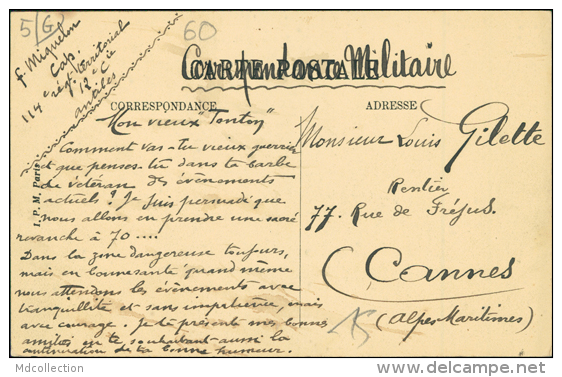 5/G
60
F. Miquelon
Cap.
114e régt territorial
12e Cie
antibes
Correspondance Militaire
CARTE POSTALE
CORRESPONDANCE
ADRESSE
Mon vieux "Tonton"
Comment vas-tu vieux guerrier
et que penses-tu dans ta barbe
de vétéran des évènements
actuels? Je suis persuadé que
nous allons en prendre une sacré
revanche à 70 ....
Dans la zone dangereuse toujours,
mais en quand même
nous attendons les évènements avec
tranquillité et sans impatience, mais
avec courage. Je te présente mes bonnes
amitiés en te souhaitant aussi la
continuation de ta bonne humeur.
Monsieur Louis Gilette
Rentier
77. Rue de Fréjus.
Cannes
(Alpes Maritimes)
I. P. M. Paris
Mdcollection
delcampe.net